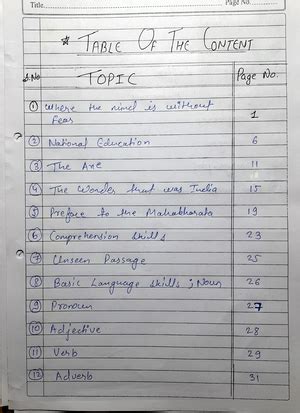 Title
Page No.
☆ TABLE OF THE CONTENT
S.No TOPIC Page No.
① Where the mind is without
Fear 1
② National Education 6
③ The Axe 11
④ The Wonder that was India 15
⑤ Preface to the Mahabharata 19
⑥ Comprehension Skills 23
⑦ Unseen Passage 25
⑧ Basic Language skills ; Noun 26
⑨ Pronoun 27
⑩ Adjective 28
⑪ Verb 29
⑫ Adverb 31